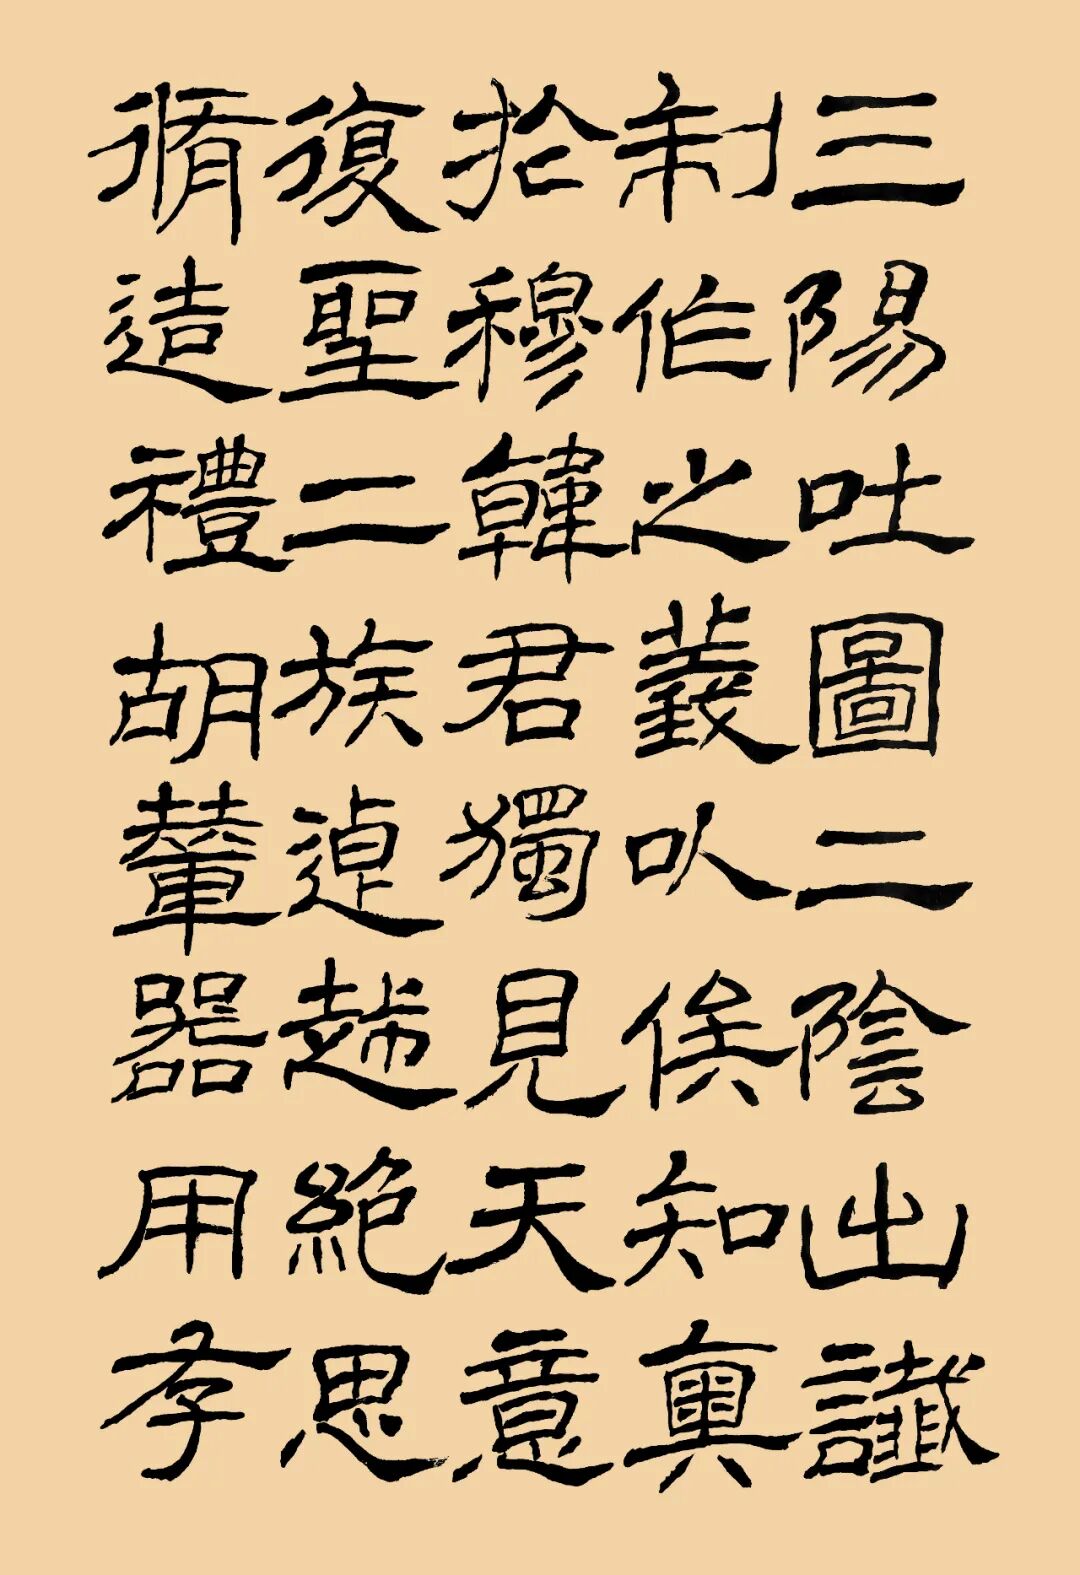 三陽吐圖二陰出讖
制作之義以俟知奧
於穆韓君獨見天意
復聖二族逴越絕思
脩造禮胡輦器用存